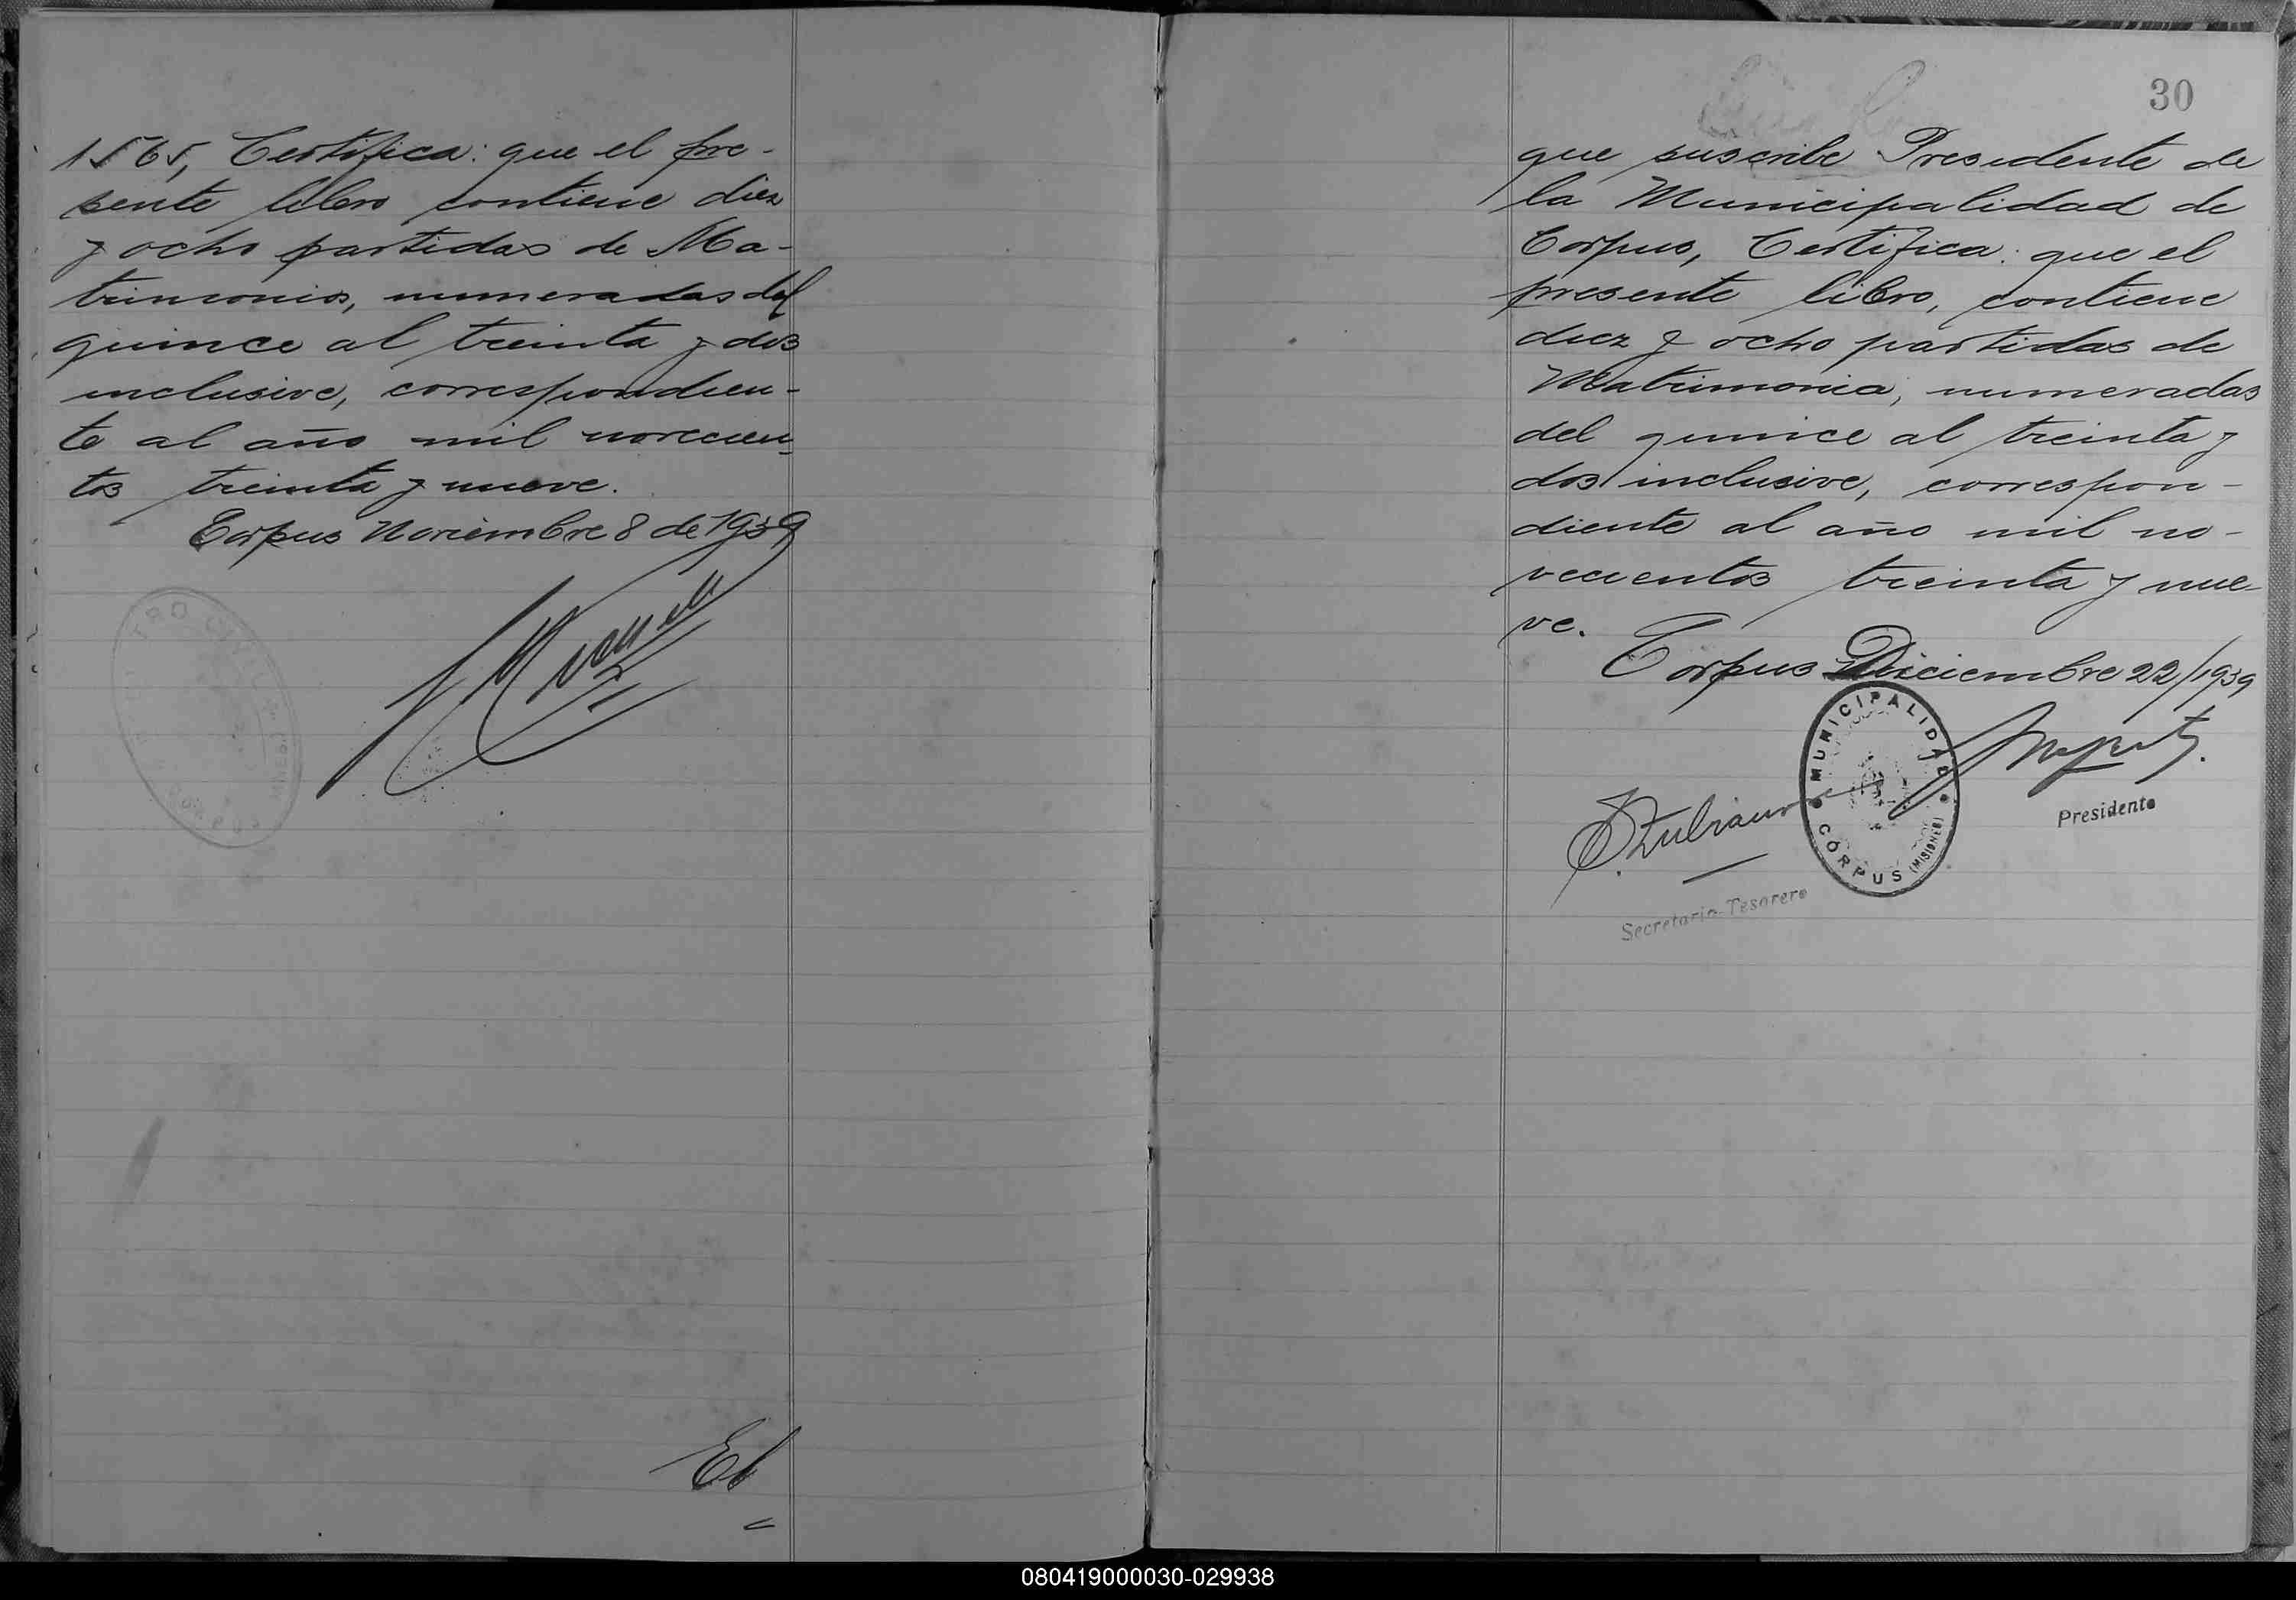 1565, Certifica: que el pre-
sente libro contiene diez
y ocho partidas de Ma-
trimonios, numeradas del
quince al treinta y dos
inclusive, correspondien-
te al año mil novecien-
tos treinta y nueve.
Corpus Noviembre 8 de 1939
El
30
que suscribe Presidente de
la Municipalidad de
Corpus, Certifica: que el
presente libro, contiene
diez y ocho partidas de
Matrimonia, numeradas
del quince al treinta y
dos inclusive, correspon-
diente al año mil no-
vecientos treinta y nue-
ve.
Corpus Diciembre 22/1939
MUNICIPALIDAD
CORPUS (MISIONES)
Presidente
Secretario-Tesorero
080419000030-029938